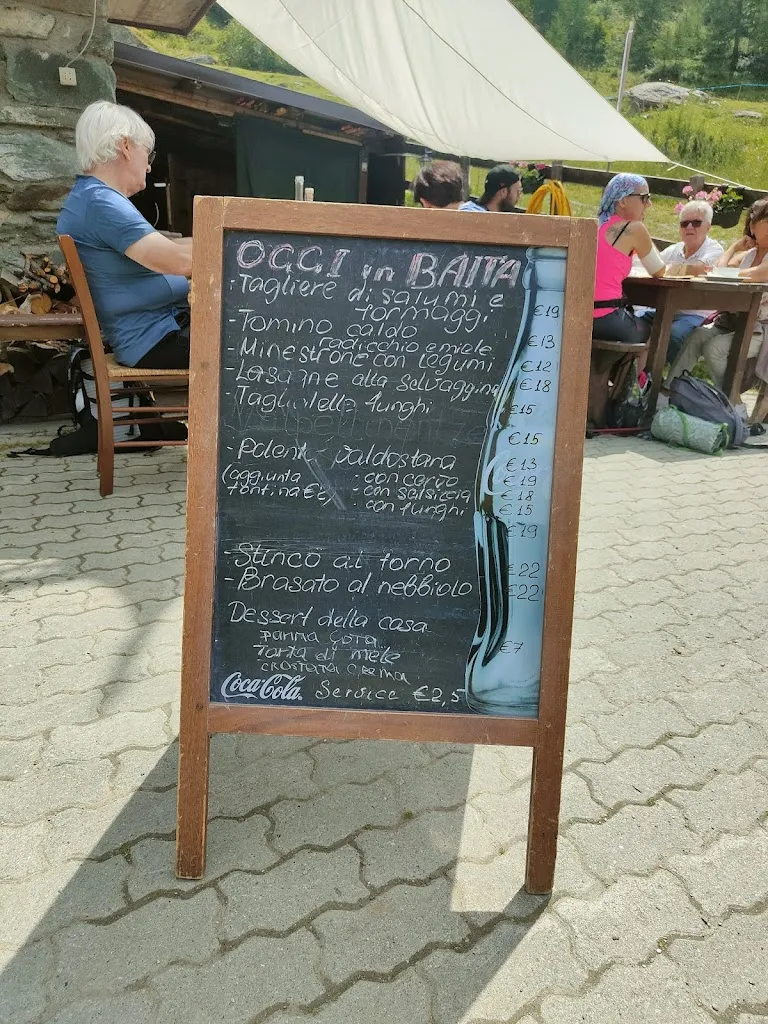 OGGI in BAITA
- Tagliere di salumi e
formaggi €19
- Tomino caldo €13
radicchio e miele
- Minestrone con legumi €12
- Lasagne alla selvaggina €18
- Tagliatelle funghi €15
€15
- Polenta valdostana €13
(aggiunta : con cervo €19
fontina : con salsiccia €18
: con funghi €15
€19
- Stinco al forno €22
- Brasato al nebbiolo €22
Dessert della casa
panna cota €7
Torta di mele
crostata crema
Coca-Cola Service €2,5